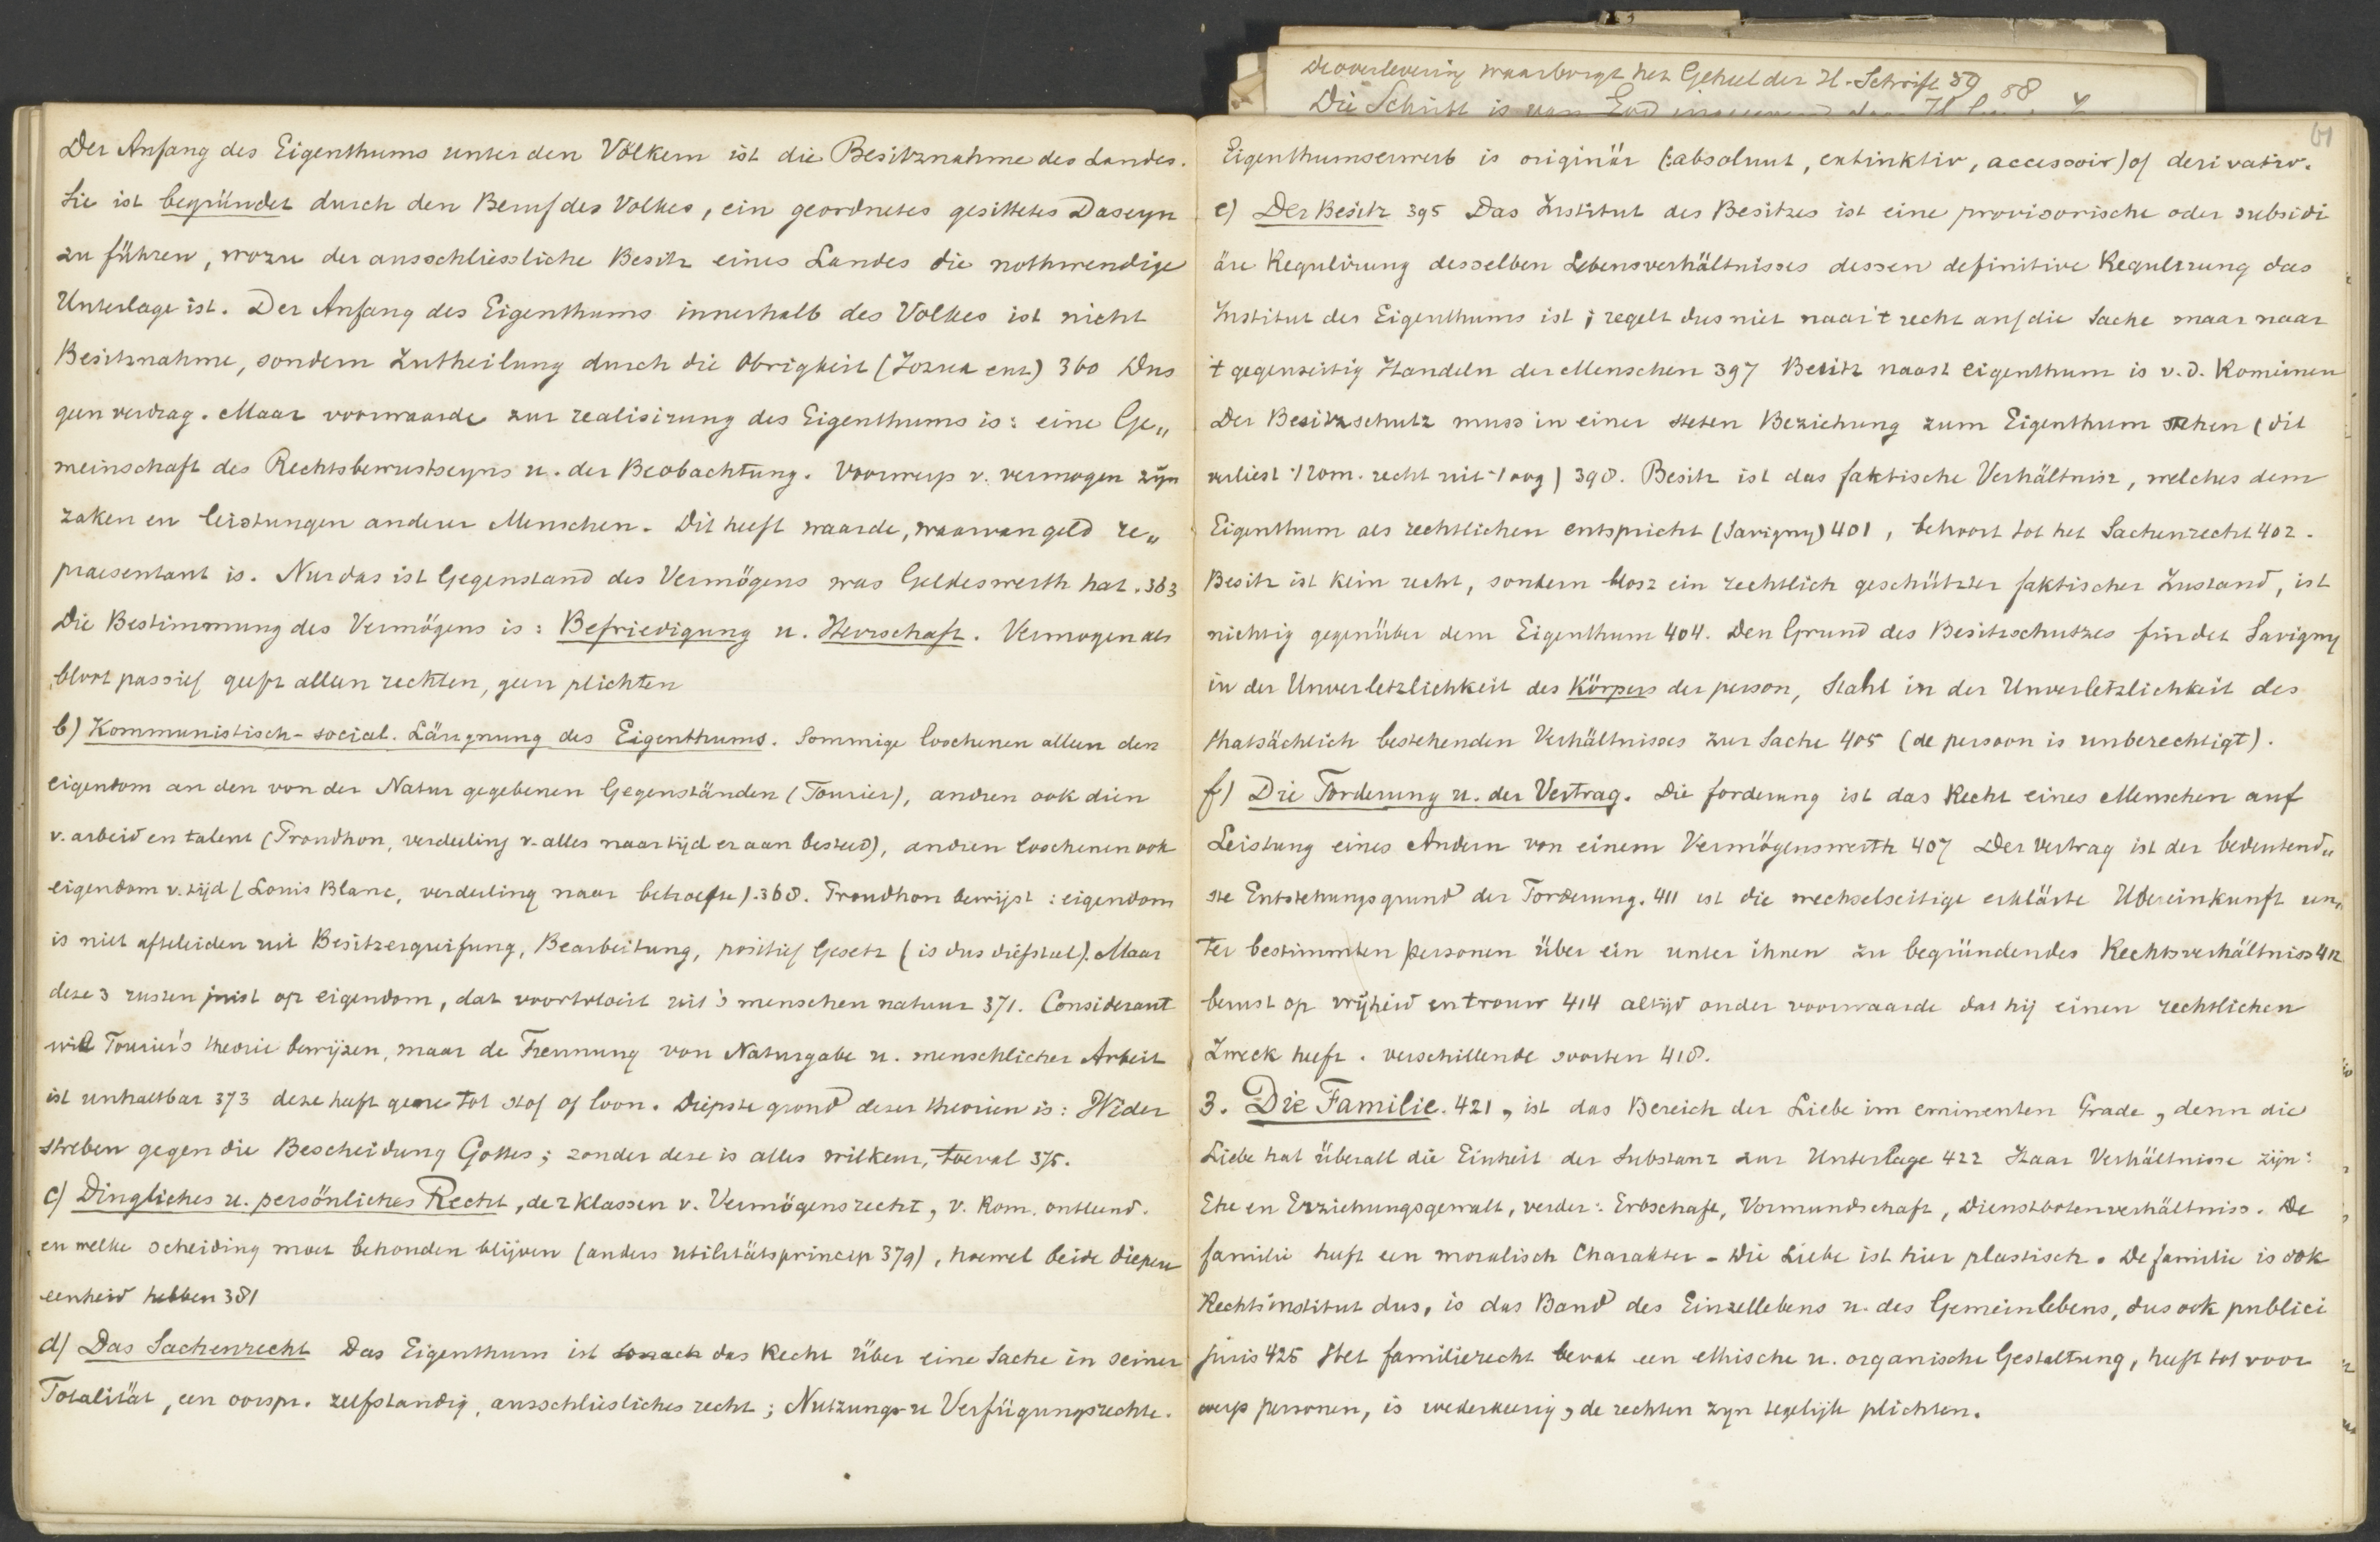 De overlevering waarborgt het Geheel der H. Schrift 59
58
Die Schrift is van God
Der Anfang des Eigenthums unter den Völkern ist die Besitznahme des Landes.
Sie ist begründet durch den Beruf des Volkes, ein geordnetes gesittetes Daseyn
zu führen, wozu der ausschliessliche Besitz eines Landes die nothwendige
Unterlage ist. Der Anfang des Eigenthums innerhalb des Volkes ist nicht
Besitznahme, sondern Zutheilung durch die Obrigkeit (Jozua enz) 360 Dus
geen verdrag. Maar voorwaarde zur realisirung des Eigenthums is: eine Ge„
meinschaft des Rechtsbewustseyns u. der Beobachtung. Voorwerp v. vermogen zijn
zaken en leistungen anderer Menschen. Dit heeft waarde, waarvan geld re„
praesentant is. Nur das ist Gegenstand des Vermögens was Geldeswerth hat. 363
Die Bestimmung des Vermögens is: Befriedigung u. Herrschaft. Vermogen als
bloot passief geeft alleen rechten, geen plichten
b) Kommunistisch-social. Läugnung des Eigenthums. Sommige loochenen alleen den
eigendom an den von der Natur gegebenen Gegenständen (Fourier), andren ook dien
v. arbeid en talent (Proudhon, verdeeling v. alles naar tijd er aan besteed), andren loochenen ook
eigendom v. tijd (Louis Blanc, verdeeling naar behoefte). 368. Proudhon bewijst: eigendom
is niet afteleiden uit Besitzergreifung, Bearbeitung, positief Gesetz (is dus diefstal). Maar
deze 3 rusten juist op eigendom, dat voortvloeit uit 's menschen natuur 371. Considerant
wil Fourier's theorie bewijzen, maar de Trennung von Naturgabe u. menschlicher Arbeit
ist unhaltbar 373 deze heeft geene tot stof of loon. Diepste grond dezer theorien is: Wider
streben gegen die Bescheidung Gottes; zonder deze is alles willkeur, toeval 375.
c) Dingliches u. persönliches Recht, de 2 klassen v. Vermögensrecht, v. Rom. ontleend.
en welke scheiding moet behouden blijven (anders utilitätsprincip 379), hoewel beide diepere
eenheid hebben 381
d) Das Sachenrecht Das Eigenthum ist sonach das Recht über eine Sache in seiner
Totalität, een oorspr. zelfstandig, ausschliesliches recht; Nutzungs- u Verfügungsrechte.
61
Eigenthumserwerb is originär (: absoluut, extinktiv, accessoir) of derivativ.
e) Der Besitz 395 Das Institut des Besitzes ist eine provisorische oder subsidi
äre Regulirung desselben Lebensverhältnisses dessen definitive Regulirung das
Institut des Eigenthums ist; regelt dus niet naar 't recht auf die Sache maar naar
't gegenseitig Handeln der Menschen 397 Besitz naast eigenthum is v. d. Romeinen
Der Besitzschutz muss in einer steten Beziehung zum Eigenthum stehen (dit
verliest 't Rom. recht uit 't oog) 398. Besitz ist das faktische Verhältnisz, welches dem
Eigenthum als rechtlichen entspricht (Savigny) 401, behoort tot het Sachenrecht 402.
Besitz ist kein recht, sondern blosz ein rechtlich geschützter faktischer Zustand, ist
nichtig gegenüber dem Eigenthum 404. Den Grund des Besitzschutzes findet Savigny
in der Unverletzlichkeit des Körpers der person, Stahl in der Unverletzlichkeit des
thatsächlich bestehenden Verhältnisses zur Sache 405 (de persoon is unberechtigt).
f) Die Forderung u. der Vertrag. Die forderung ist das Recht eines Menschen auf
Leistung eines Andern von einem Vermögenswerth 407 Der Vertrag ist der bedeutend„
ste Entstehungsgrund der Forderung. 411 ist die wechselseitige erklärte Übereinkunft un„
ter bestimmten personen über ein unter ihnen zu begründendes Rechtsverhältniss 412
berust op vrijheid en trouw 414 altijd onder voorwaarde dat hij einen rechtlichen
Zweck heeft. verschillende soorten 418.
3. Die Familie. 421, ist das Bereich der Liebe im eminenten Grade, denn die
Liebe hat überall die Einheit der Substanz zur Unterlage 422 Haar Verhältnisse zijn:
Ehe en Erziehungsgewalt, verder: Erbschaft, Vormundschaft, Dienstbotenverhältniss. De
familie heeft een moralisch Charakter - Die Liebe ist hier plastisch. De familie is ook
Rechtsinstitut dus, is das Band des Einzellebens u. des Gemeinlebens, dus ook publici
juris 425 Het familierecht bevat een ethische u. organische Gestaltung, heeft tot voor
werp personen, is wederkeerig, de rechten zyn tegelijk plichten.